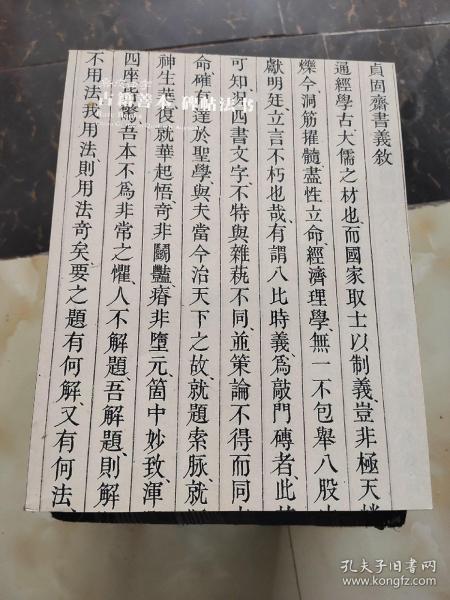 貞固齋書義敘
通經學古大儒之材也而國家取士以制義豈非極天
爍今洞筋擢髓盡性立命經濟理學無一不包舉八股
獻明廷立言不朽也哉有謂八比時義爲敲門磚者此
可知況四書文字不特與雜萟不同並策論不得而同
命確有達於聖學與夫當今治天下之故就題索脉就
神生葉復就華起悟奇非鬭豔瘠非墮元箇中妙致渾
四座皆驚吾本不爲非常之懼人不解題吾解題則解
不用法我用法則用法奇矣要之題有何解又有何法
古籍善本 碑帖法书
孔夫子旧书网
www.kongfz.com